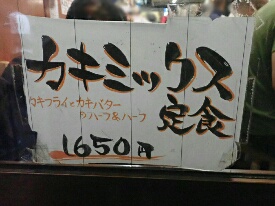 カキミックス
定食
カキフライとカキバター
のハーフ&ハーフ
1650円